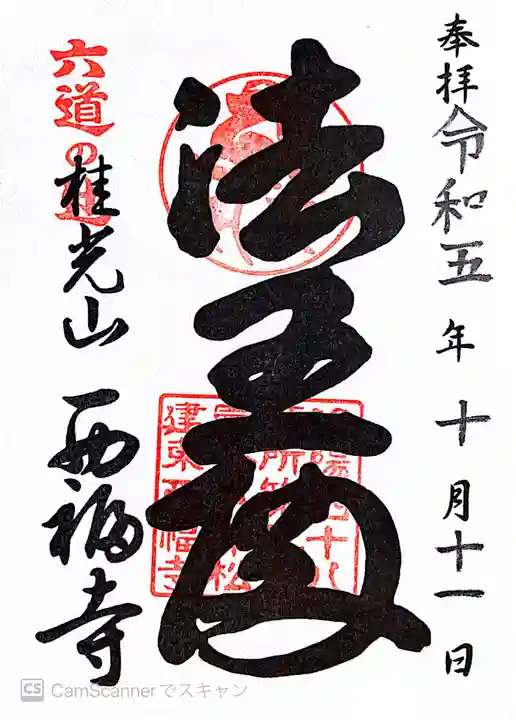 奉拝
令和五年十月十一日
法王殿
六道の辻
桂光山 西福寺
CS CamScannerでスキャン